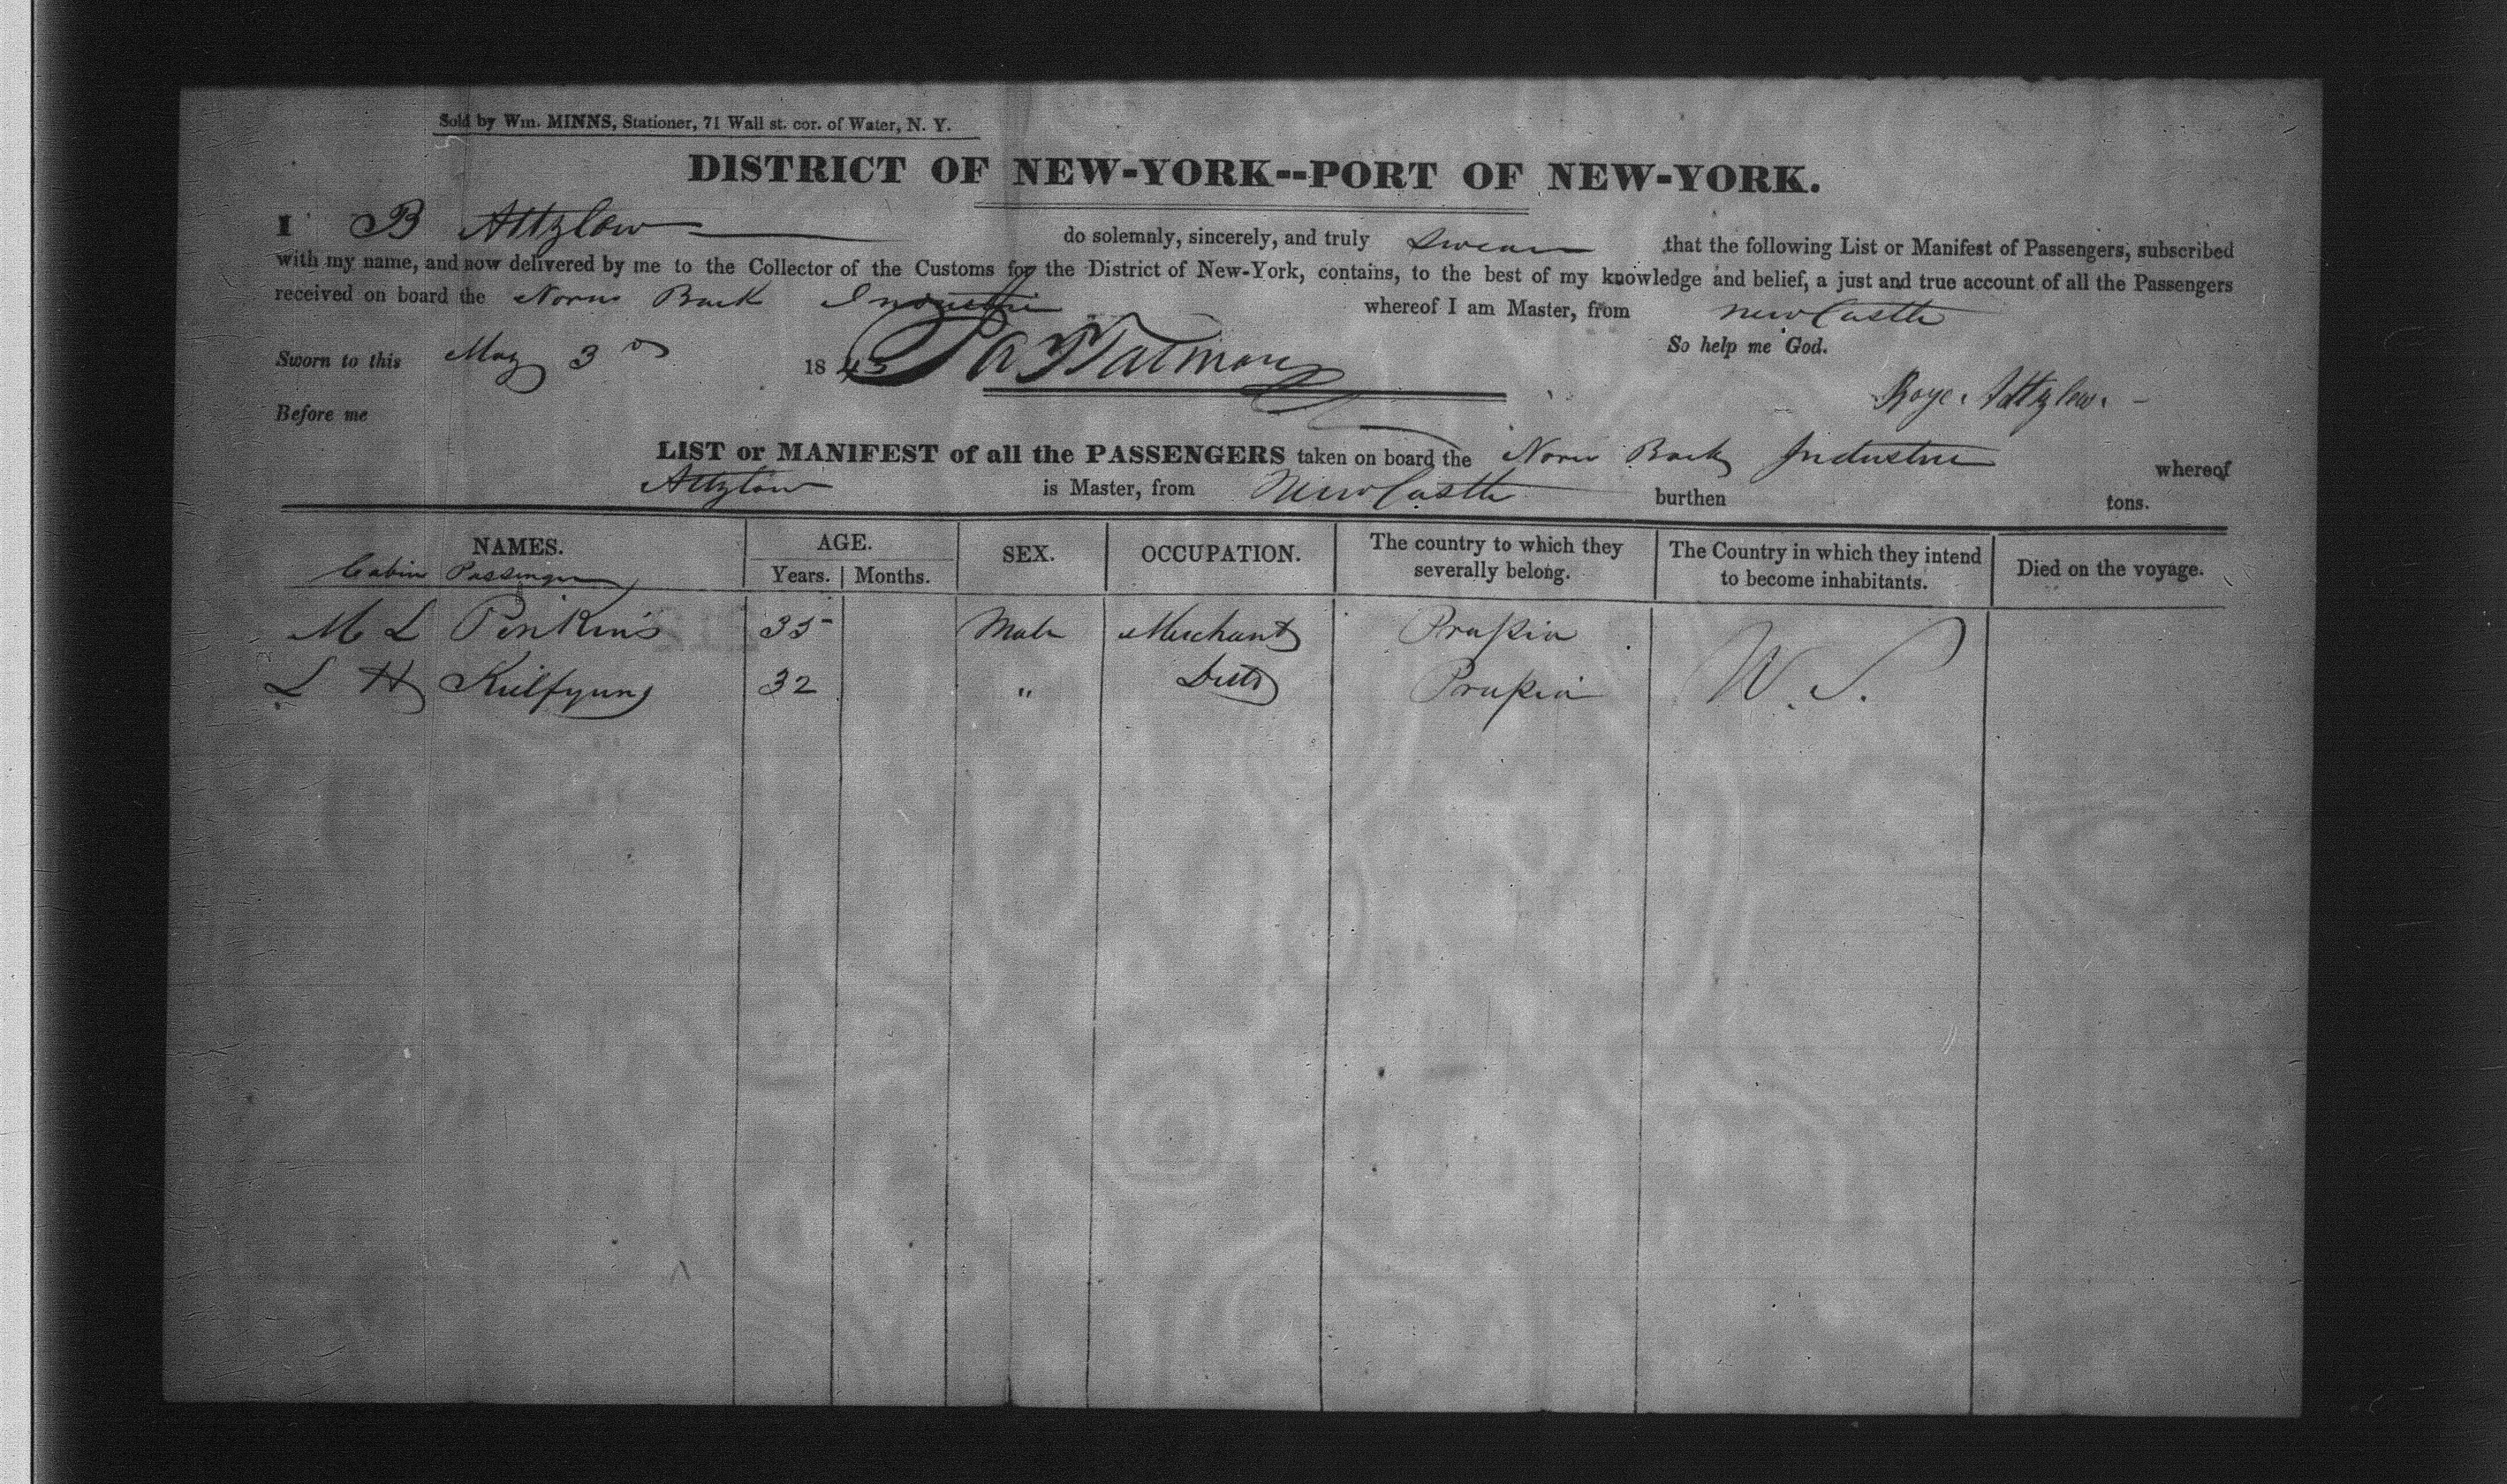 Sold by Wm. MINNS, Stationer, 71 Wall st. cor. of Water, N. Y.
DISTRICT OF NEW-YORK--PORT OF NEW-YORK.
I B Attzlow do solemnly, sincerely, and truly swear that the following List or Manifest of Passengers, subscribed
with my name, and now delivered by me to the Collector of the Customs for the District of New-York, contains, to the best of my knowledge and belief, a just and true account of all the Passengers
received on board the Norw Bark Industrie whereof I am Master, from New Castle
So help me God.
Sworn to this May 3 1843
Before me
Attzlow.
LIST or MANIFEST of all the PASSENGERS taken on board the Norw Bark Industrie whereof
Attzlow is Master, from New Castle burthen tons.
NAMES. AGE. SEX. OCCUPATION. The country to which they severally belong. The Country in which they intend to become inhabitants. Died on the voyage.
Cabin Passengers Years. Months.
M L Penkins 35 Male Merchant Prussia
L H 32 " Ditto Prussia U. S.